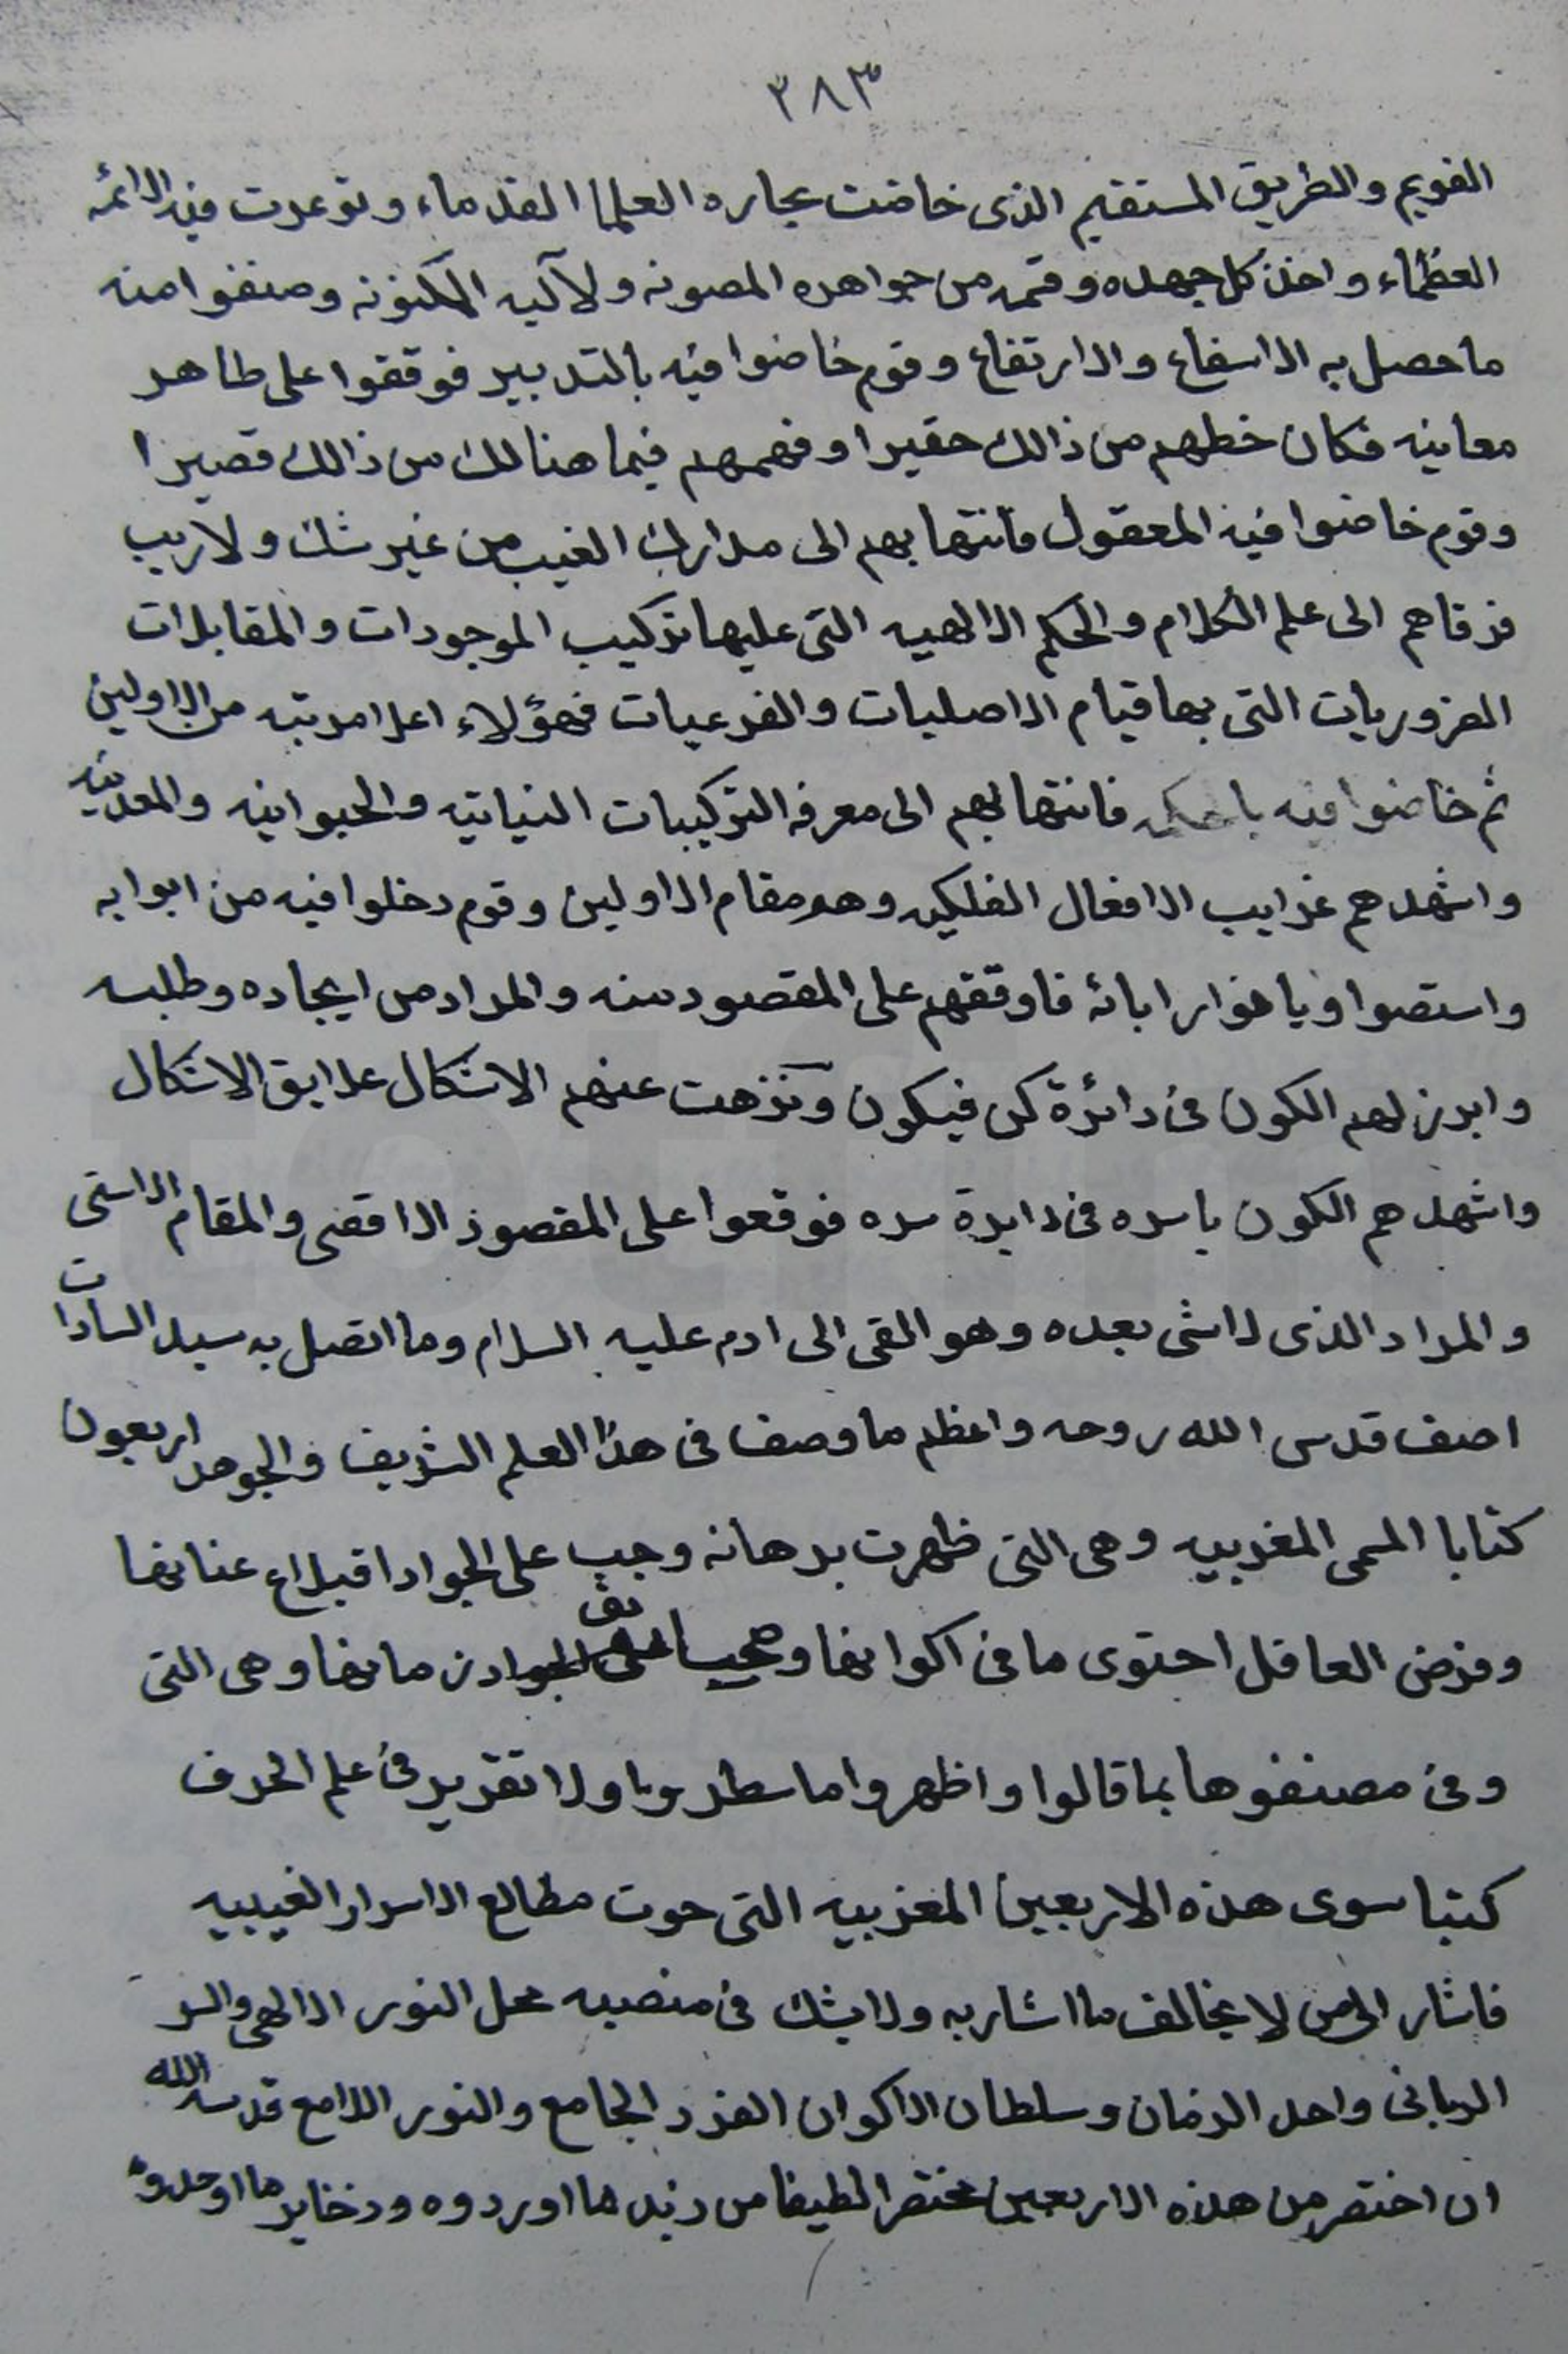 ٣٨٣
القويم والطريق المستقيم الذى خاضت بحاره العلما القدماء وتوعدت فيه الائمه
العظماء واخذ كل جهده وقمه من جواهره المصونه ولآليه المكنونه وصنفوا منه
ما حصل به الاسفاع والارتفاع وقوم خاضوا فيه بالتدبير فوقفوا على ظاهر
معانيه فكان حظهم من ذالك حقيرا وفهمهم فيما هنالك من ذالك قصيرا
وقوم خاضوا فيه المعقول فانتها بهم الى مدارك الغيب من غير شك ولاريب
فرقاهم الى علم الكلام والحكم الالهيه التى عليها تركيب الموجودات والمقابلات
الضروريات التى بها قيام الاصليات والفرعيات فهؤلاء اعلا مرتبه من الاولين
ثم خاضوا فيه بالحكمه فانتها بهم الى معرفه التركيبات النباتيه والحيوانيه والمعدنيه
واشهدهم غرايب الافعال الفلكيه وهو مقام الاولين وقوم دخلوا فيه من ابوابه
واستضوا وبا فوقفهم على المقصود منه والمراد من ايجاده وطلبه
وابرز لهم الكون فى دائرة كن فيكون وتنزهت عنهم الاشكال علايق الاشكال
واشهدهم الكون باسره فى دايرة سره فوقعوا على المقصود الاقصى والمقام الاسنى
والمراد الذى لاشى بعده وهو القى الى ادم عليه السلام وما اتصل به سيد السادات
اصف قدس الله روحه واعظم ما وصف فى هذا العلم الشريف والجوهر اربعون
كتابا المسمى المغربيه وهى التى ظهرت برهانه وجب على الجواد اقبلاع عنانها
وفرض العاقل احتوى ما فى اكوابها ما بها وهى التى
وفى مصنفوها بما قالوا واظهروا ما سطروا ولا تقرير فى علم الحرف
كتبا سوى هذه الاربعين المغربيه التى حوت مطالع الاسرار الغيبيه
فاشار الى من لا يخالف ما اشار به ولا يشك فى منصبه محل النور الالهى والسر
الربانى واحد الزمان وسلطان الاكوان الفرد الجامع والنور اللامع قدسه الله
ان اختصر من هذه الاربعين مختصرا لطيفا من زبد ما اوردوه وذخاير ما اوجدوه